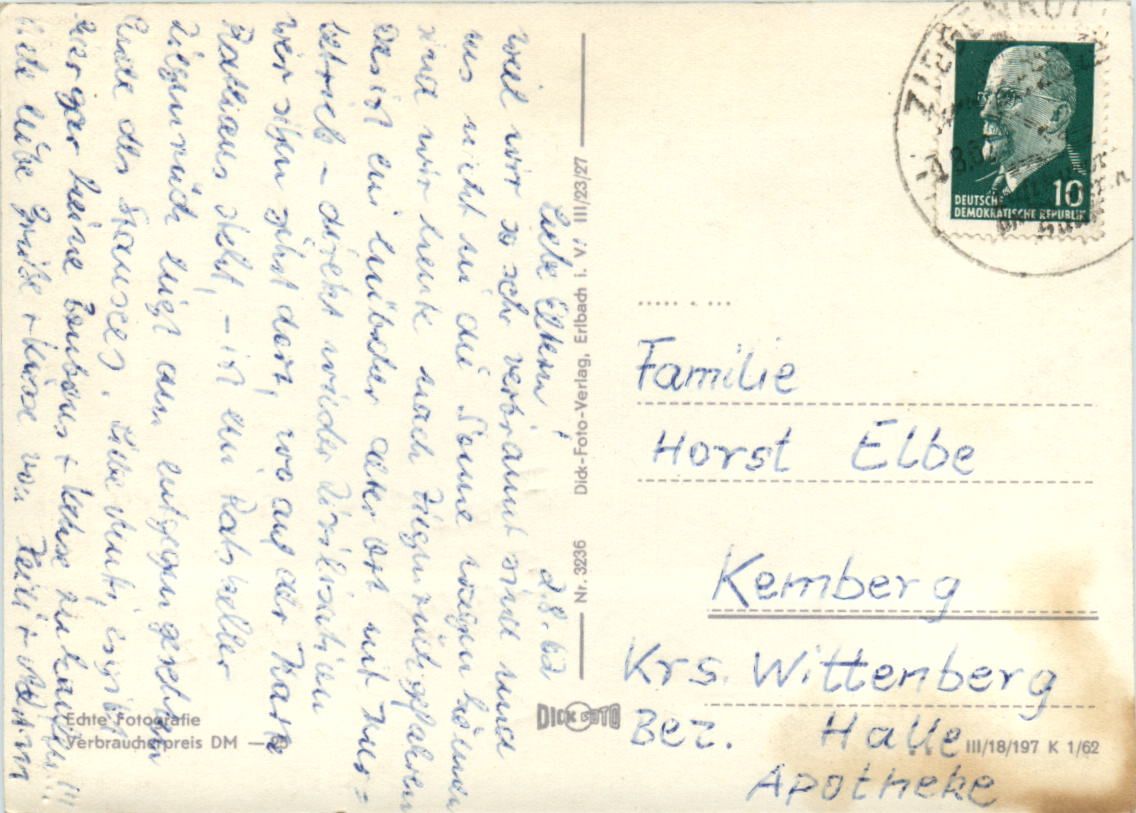 Liebe Eltern! 2.8.62
weil wir so sehr verbrannt sind und
uns nicht in die Sonne wagen können
sind wir heute nach Ziegenrück gefahren
Das ist ein hübscher alter Ort mit Kur=
betrieb – direkt wieder Zivilisation
wir sitzen jetzt dort, wo auf der Karte
Rathaus steht, – ist ein Ratskeller
Ziegenrück liegt am entgegengesetzten
Ende des Stausees. Liebe Mutti, es gibt
hier gar keine Bonbons + Kekse zu kaufen!!!
Viele liebe Grüße + Küsse von Heidi +
Nr. 3236 Dick-Foto-Verlag, Erlbach i. V. III/23/27
DICK FOTO
Echte Fotografie
Verbraucherpreis DM
ZIEGENRÜCK
DEUTSCHE
DEMOKRATISCHE REPUBLIK
10
Familie
Horst Elbe
Kemberg
Krs. Wittenberg
Bez. Halle
Apotheke
III/18/197 K 1/62